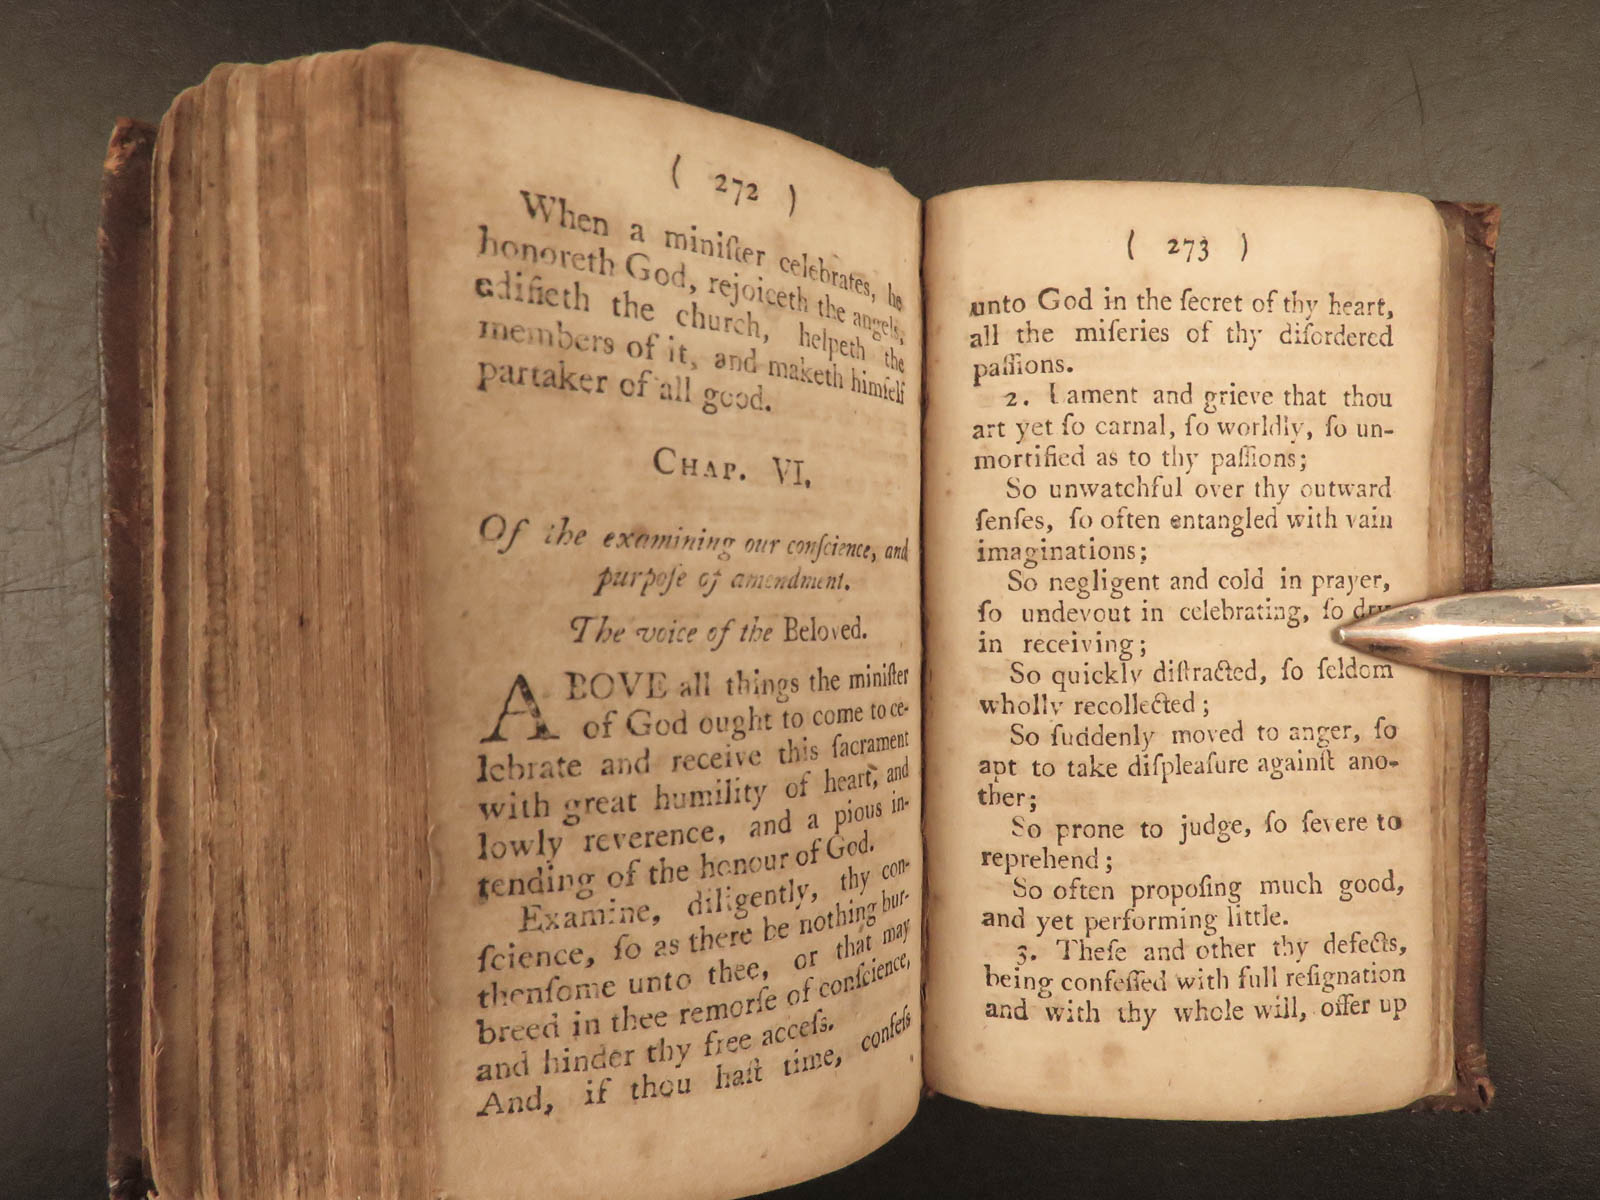 ( 272 )
When a miniſter celebrates, he
honoreth God, rejoiceth the angels,
edifieth the church, helpeth the
members of it, and maketh himſelf
partaker of all good.
CHAP. VI.
Of the examining our conſcience, and
purpoſe of amendment.
The voice of the Beloved.
ABOVE all things the miniſter
of God ought to come to ce-
lebrate and receive this ſacrament
with great humility of heart, and
lowly reverence, and a pious in-
tending of the honour of God.
Examine, diligently, thy con-
ſcience, ſo as there be nothing bur-
thenſome unto thee, or that may
breed in thee remorſe of conſcience,
and hinder thy free acceſs.
And, if thou haſt time, confeſs
( 273 )
unto God in the ſecret of thy heart,
all the miſeries of thy diſordered
paſſions.
2. Lament and grieve that thou
art yet ſo carnal, ſo worldly, ſo un-
mortified as to thy paſſions;
So unwatchful over thy outward
ſenſes, ſo often entangled with vain
imaginations;
So negligent and cold in prayer,
ſo undevout in celebrating, ſo dry
in receiving;
So quickly diſtracted, ſo ſeldom
wholly recollected;
So ſuddenly moved to anger, ſo
apt to take diſpleaſure againſt ano-
ther;
So prone to judge, ſo ſevere to
reprehend;
So often propoſing much good,
and yet performing little.
3. Theſe and other thy defects,
being confeſſed with full reſignation
and with thy whole will, offer up